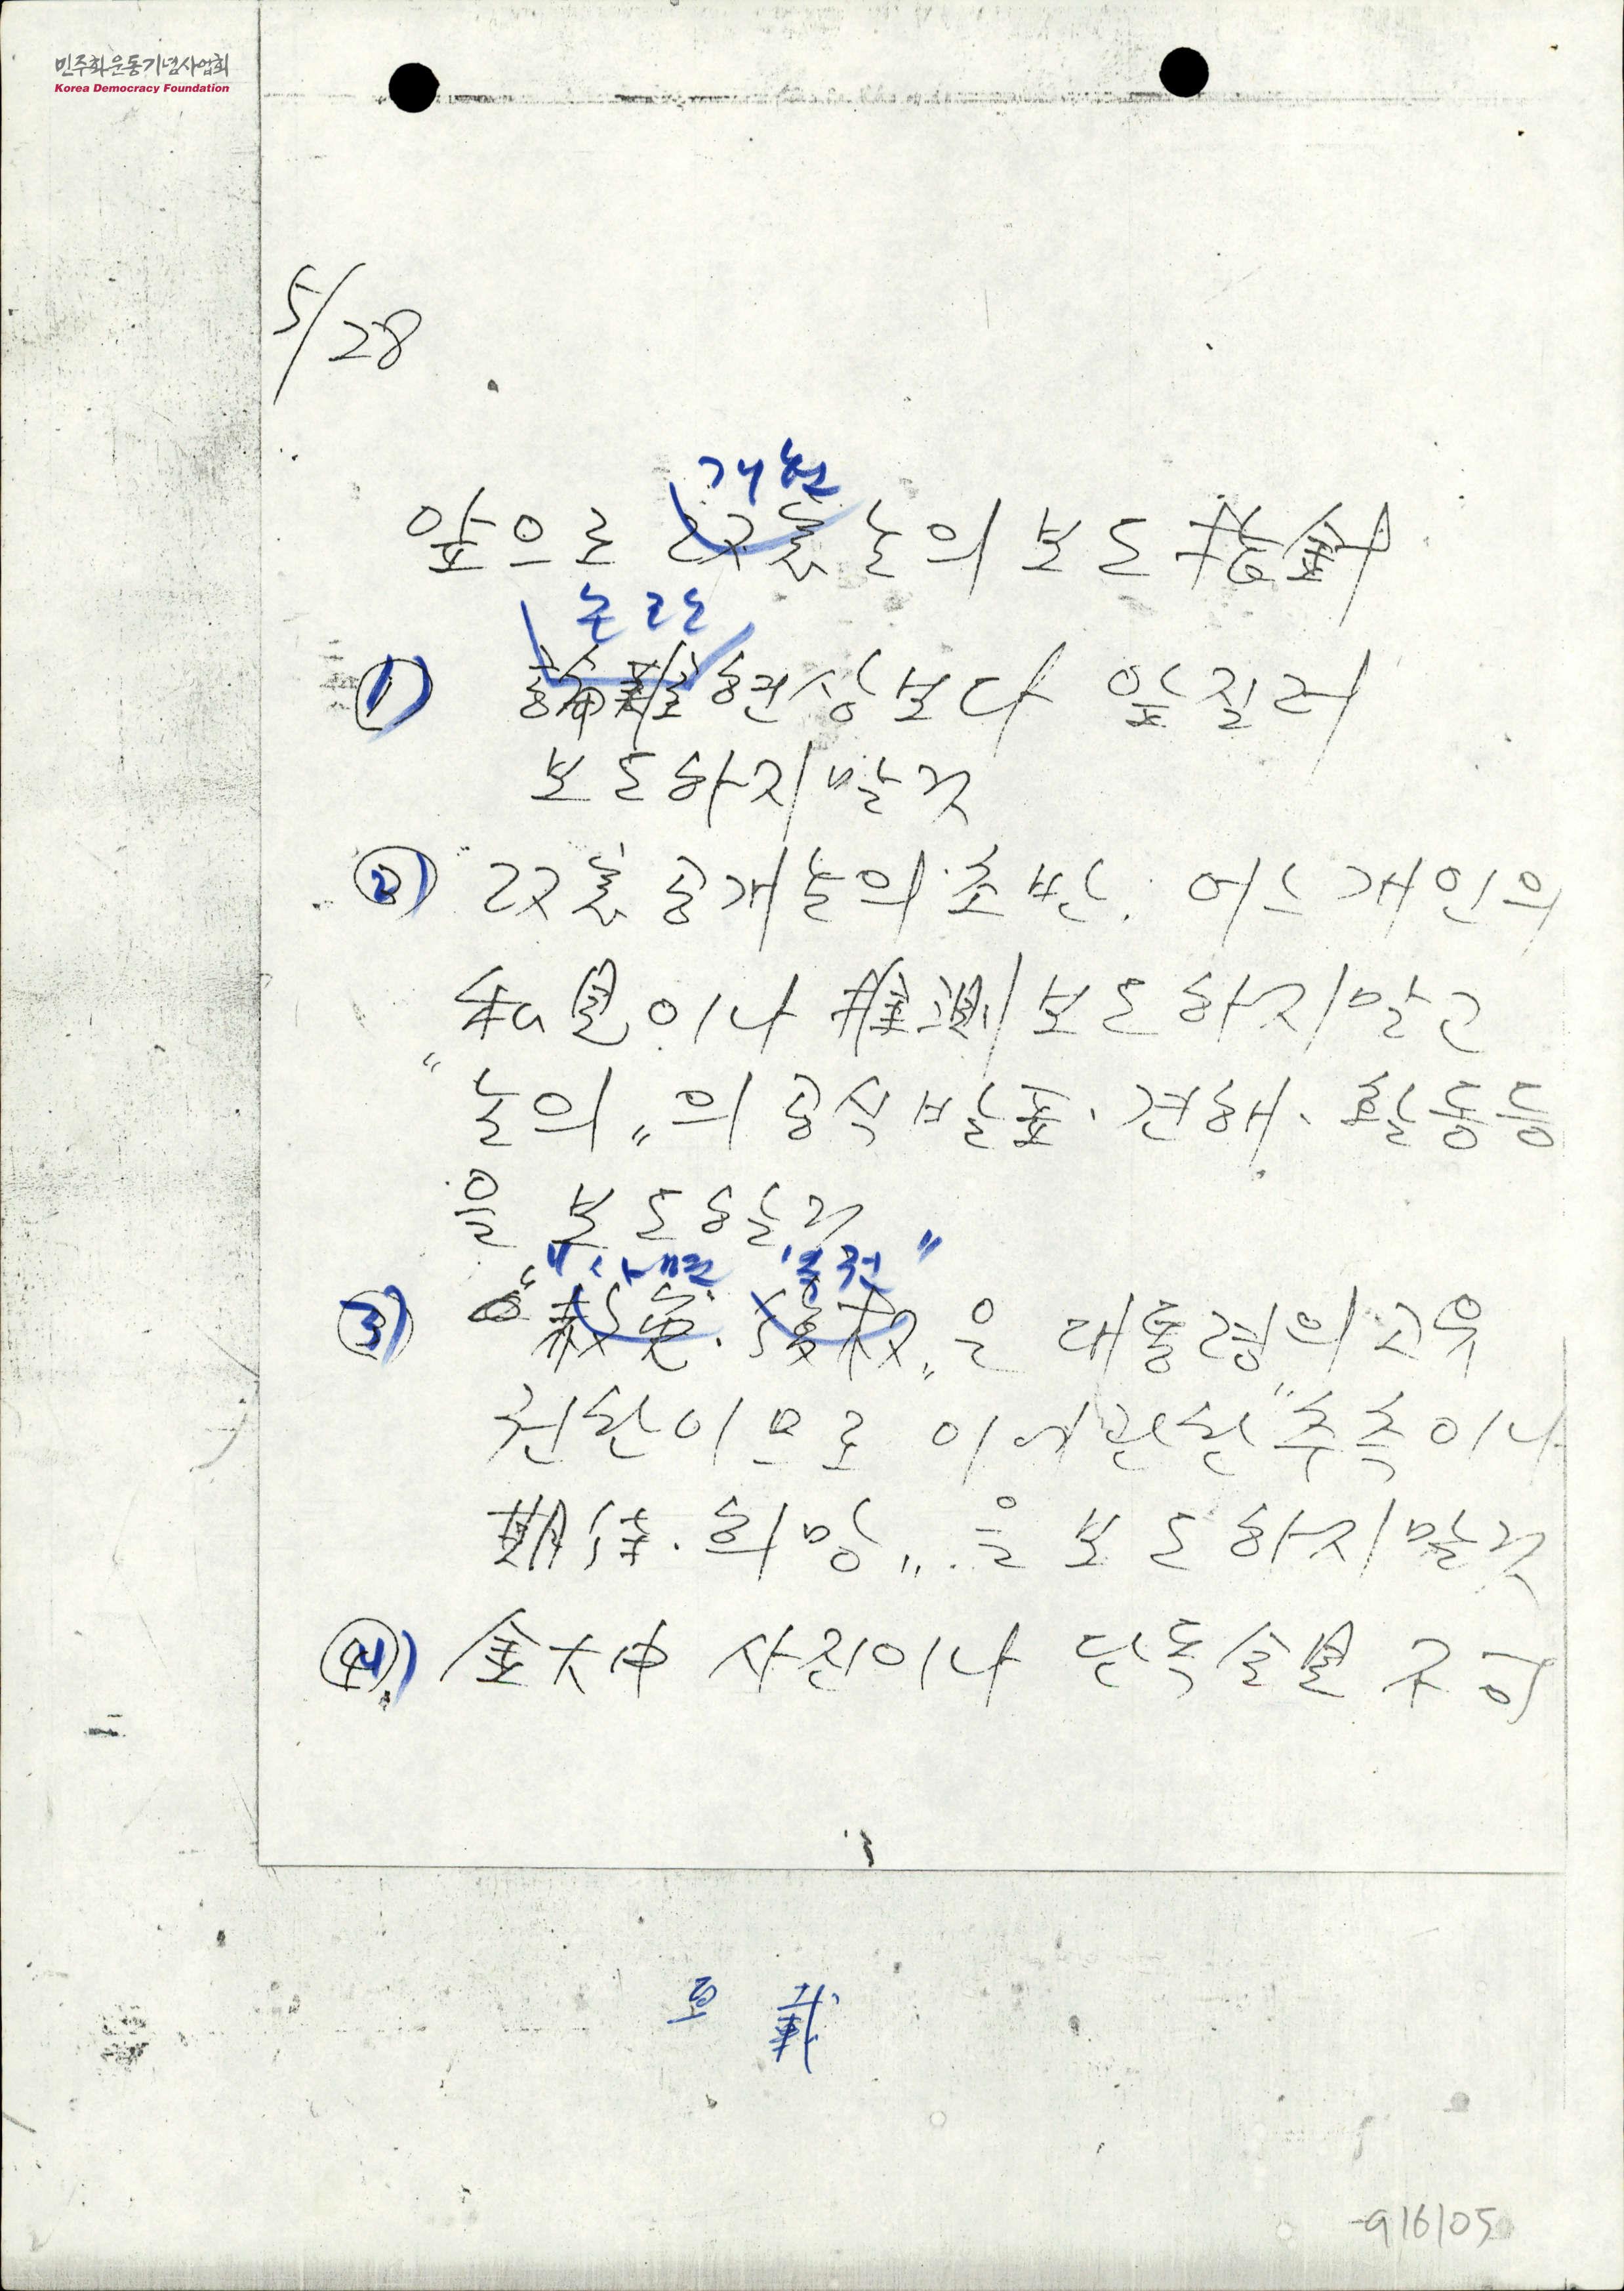 민주화운동기념사업회
Korea Democracy Foundation
5/28
개헌
앞으로 改憲논의 보도 指針
논란
① 論難현상보다 앞질러
보도하지말것
② 改憲공개논의 초반. 어느 개인의
私見이나 推測 보도하지말고
"논의"의 공식발표·견해·활동등
을 보도할것
"사면 복권"
③ "赦免·復權"은 대통령의고유
권한이므로 이에관한 "추측이나
期待·희망"을 보도하지말것
④ 金大中 사진이나 단독会見 不可
轉載
-916105